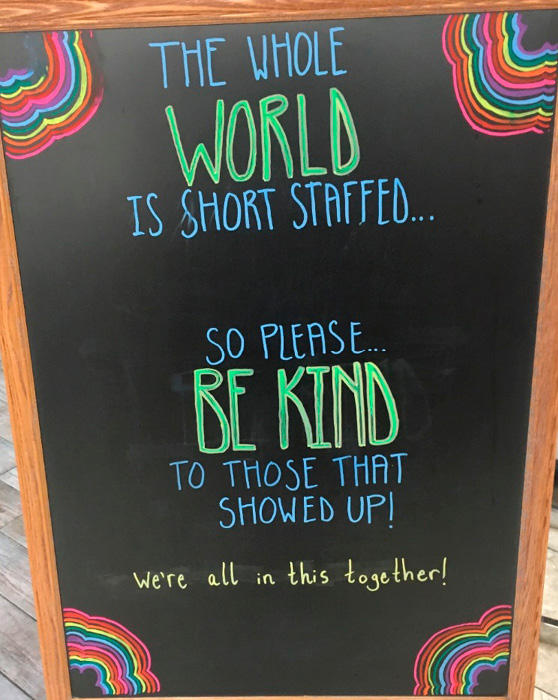 THE WHOLE
WORLD
IS SHORT STAFFED...
SO PLEASE...
BE KIND
TO THOSE THAT
SHOWED UP!
We're all in this together!